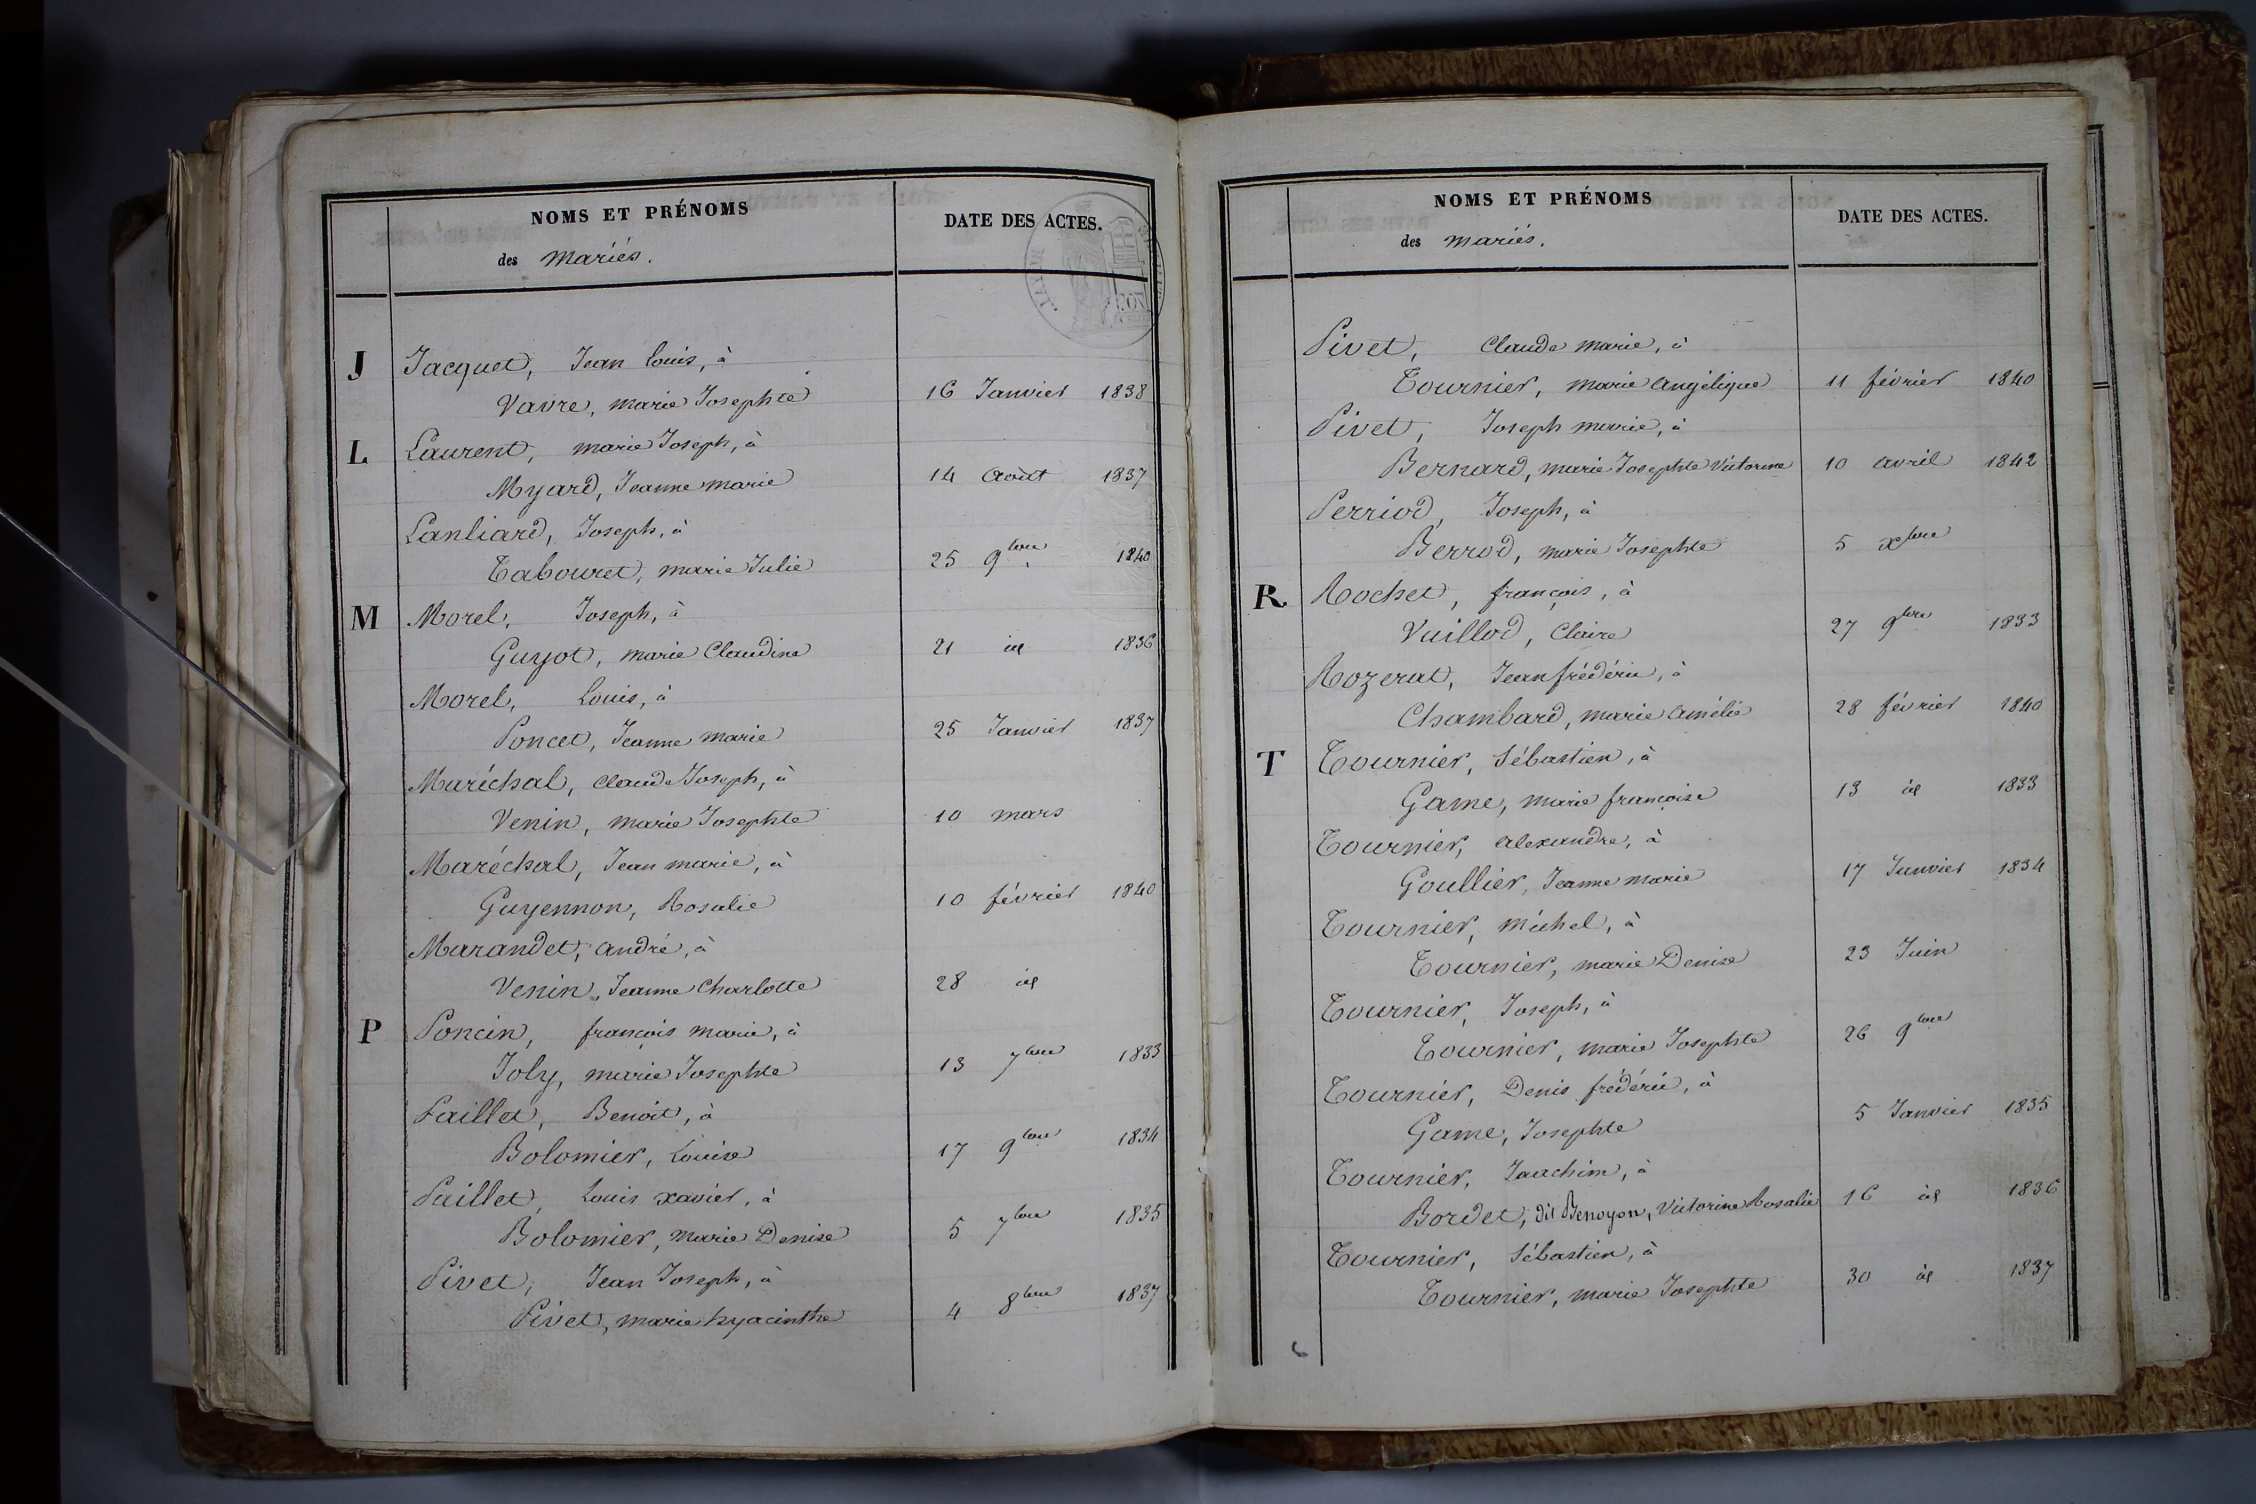 NOMS ET PRÉNOMS
des Mariés.
DATE DES ACTES.
J Jacquet, Jean Louis, à
Vavre, marie Josephte 16 Janvier 1838
L Laurent, marie Joseph, à
Myard, Jeanne marie 14 Août 1837
Lanliard, Joseph, à
Tabouret, marie Julie 25 9bre 1840
M Morel, Joseph, à
Guyot, marie Claudine 21 id 1836
Morel, Louis, à
Poncet, Jeanne marie 25 Janvier 1837
Maréchal, claude Joseph, à
Venin, marie Josephte 10 mars
Maréchal, Jean marie, à
Guyennon, Rosalie 10 février 1840
Marandet, andré, à
Venin, Jeanne Charlotte 28 id
P Poncin, françois marie, à
Joly, marie Josephte 13 7bre 1833
Paillet, Benoit, à
Bolomier, Louise 17 9bre 1834
Paillet, Louis xavier, à
Bolomier, Marie Denise 5 7bre 1835
Pivet, Jean Joseph, à
Pivet, marie hyacinthe 4 8bre 1837
NOMS ET PRÉNOMS
des mariés.
DATE DES ACTES.
Pivet, Claude marie, à
Tournier, marie angélique 11 février 1840
Pivet, Joseph marie, à
Bernard, marie Josephte Victorine 10 avril 1842
Perriod, Joseph, à
Berrod, marie Josephte 5 xbre
R Rochet, françois, à
Vuillod, Claire 27 9bre 1833
Rozerat, Jean frédéric, à
Chambard, marie amélie 28 février 1840
T Tournier, Sébastien, à
Game, marie françoise 13 id 1833
Tournier, alexandre, à
Goullier, Jeanne marie 17 Janvier 1834
Tournier, michel, à
Tournier, marie Denise 23 Juin
Tournier, Joseph, à
Tournier, marie Josephte 26 9bre
Tournier, Denis frédéric, à
Game, Josephte 5 Janvier 1835
Tournier, Joachim, à
Bordet, dit Benoyon, Victorine Rosalie 16 id 1836
Tournier, Sébastien, à
Tournier, marie Josephte 30 id 1837
6